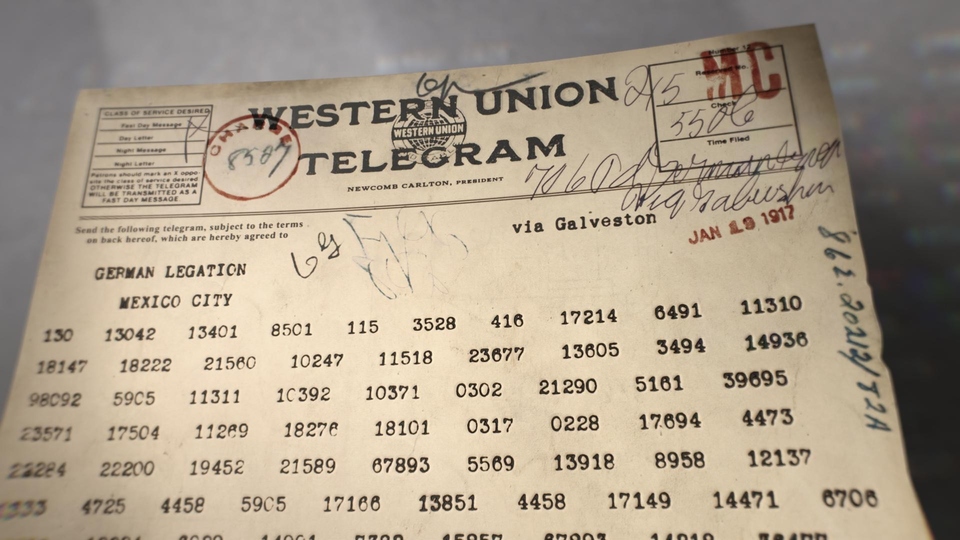 CLASS OF SERVICE DESIRED
Fast Day Message
Day Letter
Night Message
Night Letter
Patrons should mark an X oppo-
site the class of service desired;
OTHERWISE THE TELEGRAM
WILL BE TRANSMITTED AS A
FAST DAY MESSAGE.
CHARGE
8587
WESTERN UNION
WESTERN UNION
TELEGRAM
NEWCOMB CARLTON, PRESIDENT
MC
215
Check
5506
Time Filed
Send the following telegram, subject to the terms
on back hereof, which are hereby agreed to
via Galveston
JAN 19 1917
GERMAN LEGATION
MEXICO CITY
130 13042 13401 8501 115 3528 416 17214 6491 11310
18147 18222 21560 10247 11518 23677 13605 3494 14936
98092 5905 11311 10392 10371 0302 21290 5161 39695
23571 17504 11269 18276 18101 0317 0228 17694 4473
22284 22200 19452 21589 67893 5569 13918 8958 12137
4725 4458 5905 17166 13851 4458 17149 14471 6706
862.20212/82A